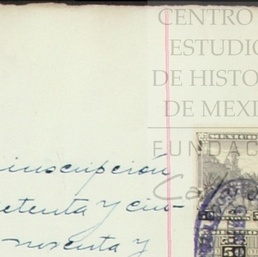 CENTRO
ESTUDIO
DE HISTO
DE MEXI
FUNDAC
inscripción
etenta y cin-
noventa y
50